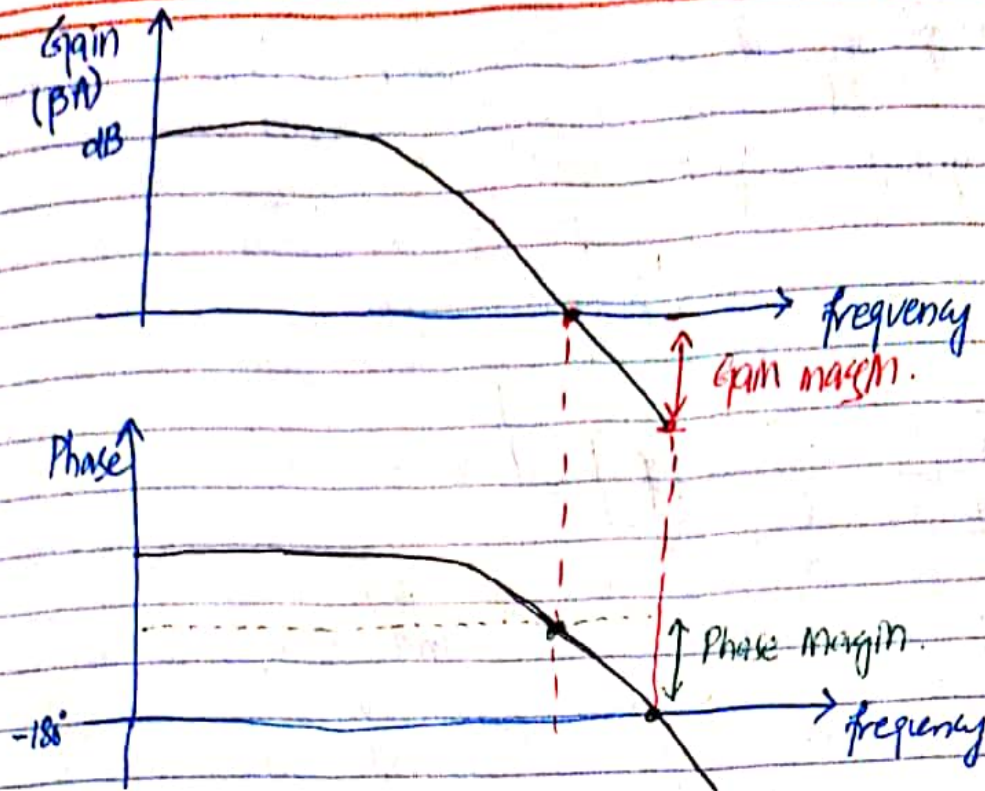 Gain
(βA)
dB
frequency
Gain margin.
Phase
Phase Margin.
-180°
frequency